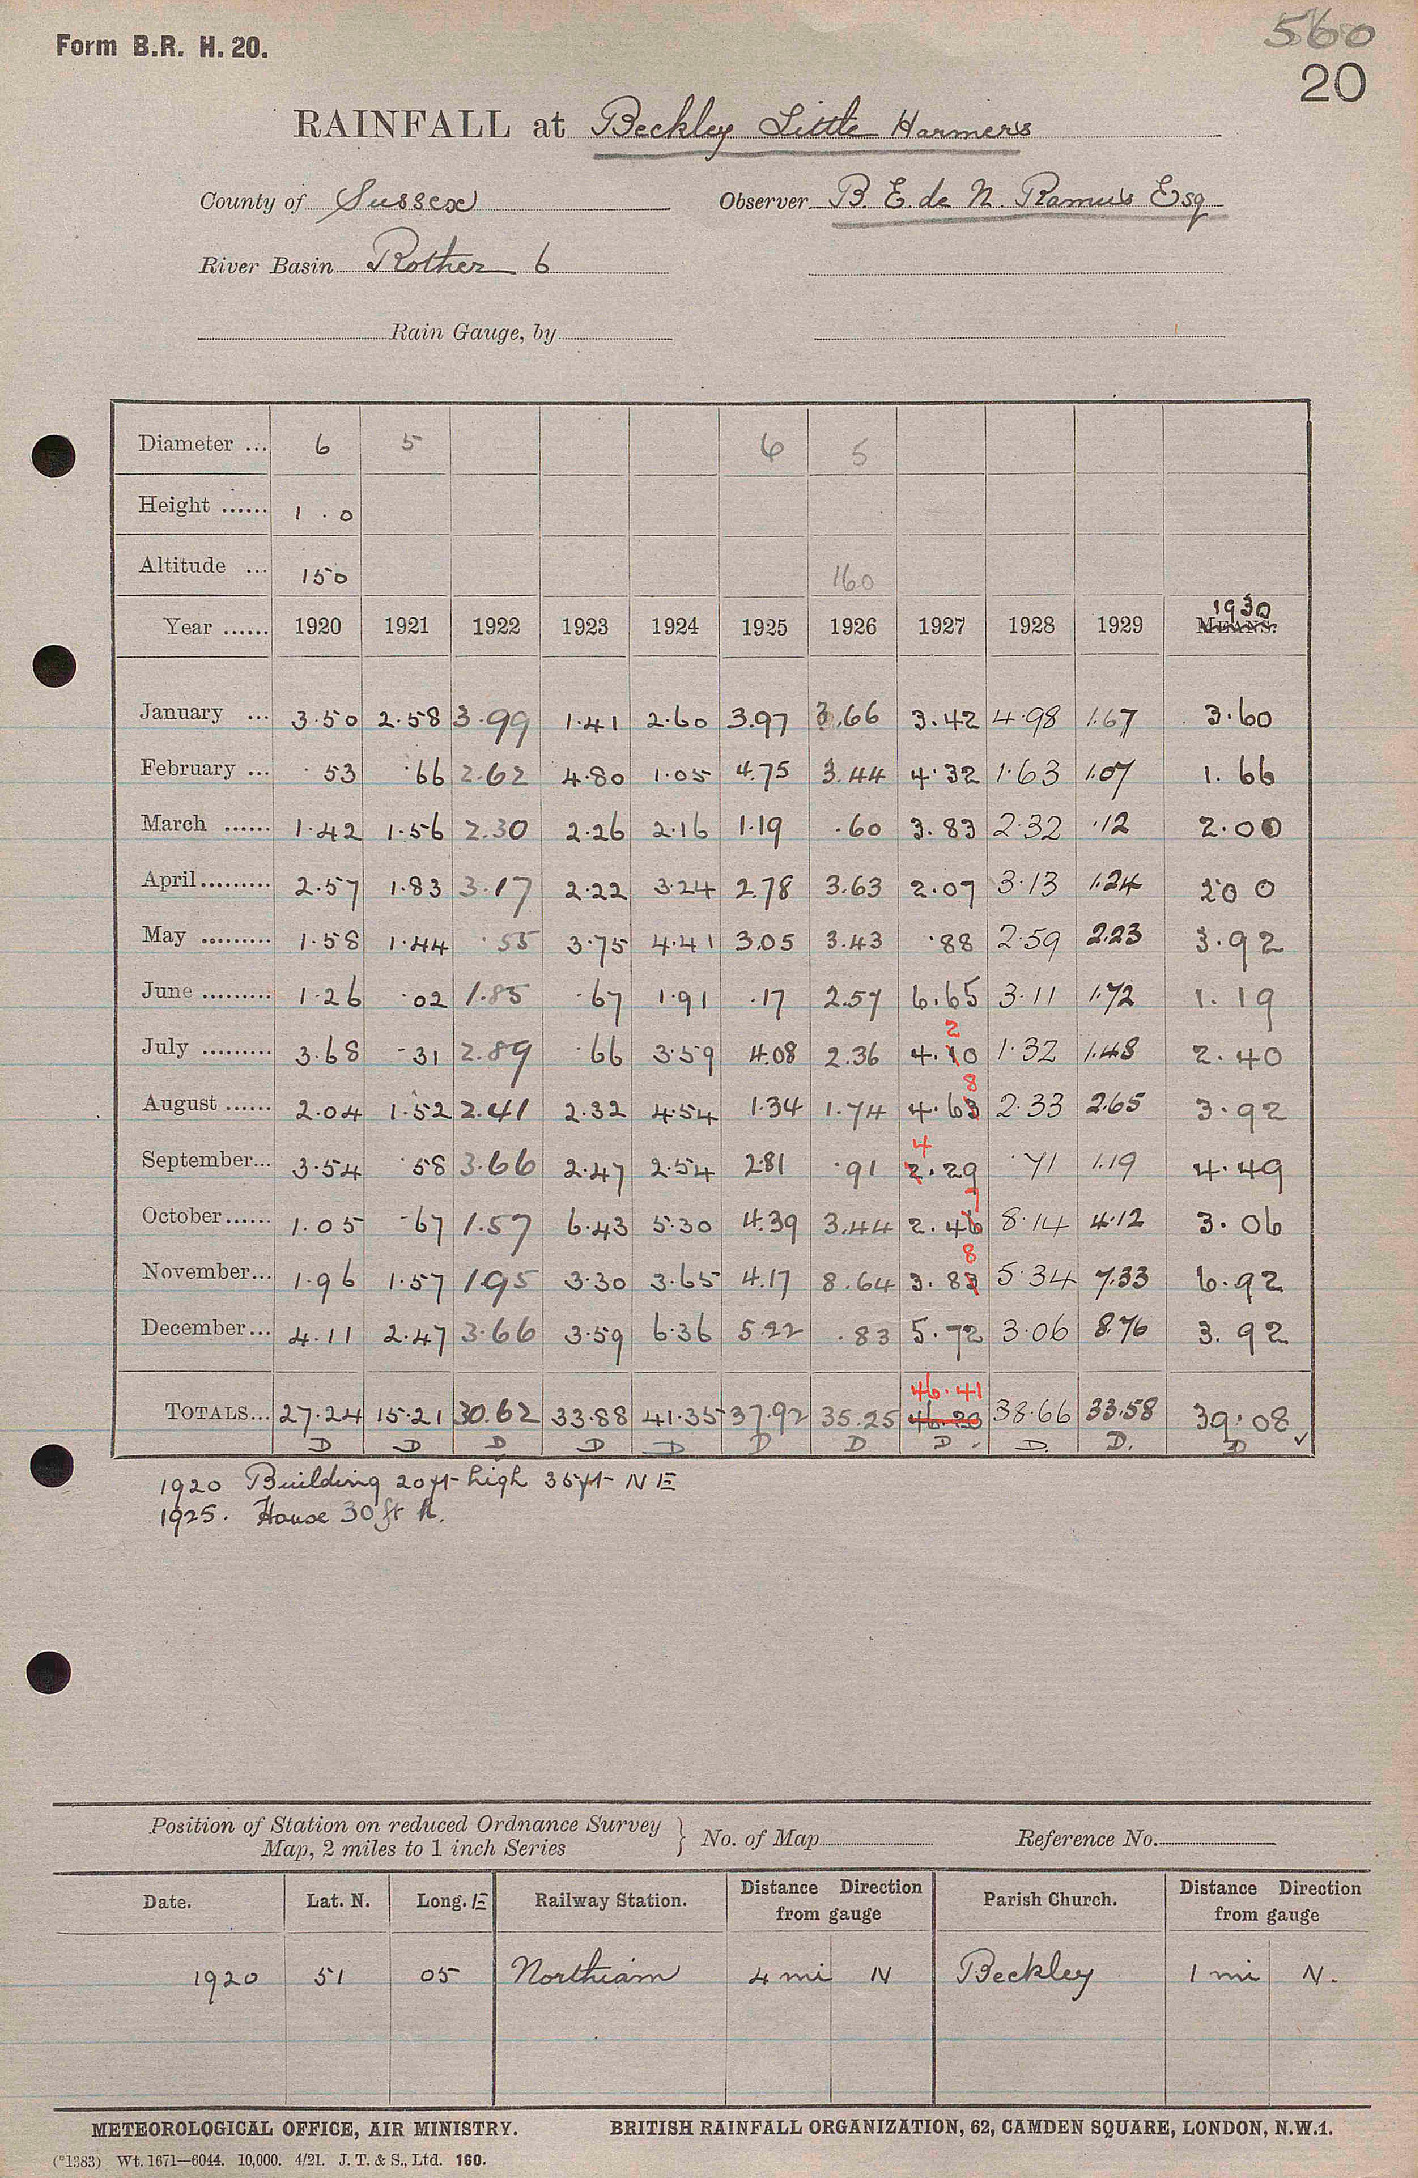 560
Form B.R. H. 20.
20
RAINFALL at Beckley Little Harmers
County of Sussex Observer B. E. de N. Ramus Esq
River Basin Rother 6
Rain Gauge, by
Diameter ... 6 5 6 5
Height ...... 1 . 0
Altitude ... 150 160
1930
Year ...... 1920 1921 1922 1923 1924 1925 1926 1927 1928 1929 MEANS.
January ... 3.50 2.58 3.99 1.41 2.60 3.97 3.66 3.42 4.98 1.67 3.60
February ... .53 .66 2.62 4.80 1.05 4.75 3.44 4.32 1.63 1.07 1.66
March ...... 1.42 1.56 2.30 2.26 2.16 1.19 .60 3.83 2.32 .12 2.00
April......... 2.57 1.83 3.17 2.22 3.24 2.78 3.63 2.07 3.13 1.24 2.00
May ......... 1.58 1.44 .55 3.75 4.41 3.05 3.43 .88 2.59 2.23 3.92
June ......... 1.26 .02 1.85 .67 1.91 .17 2.57 6.65 3.11 1.72 1.19
2
July ......... 3.68 .31 2.89 .66 3.59 4.08 2.36 4.10 1.32 1.48 2.40
8
August ...... 2.04 1.52 2.41 2.32 4.54 1.34 1.74 4.63 2.33 2.65 3.92
4
September... 3.54 .58 3.66 2.47 2.54 2.81 .91 2.29 .71 1.19 4.49
7
October...... 1.05 .67 1.57 6.43 5.30 4.39 3.44 2.46 8.14 4.12 3.06
8
November... 1.96 1.57 1.95 3.30 3.65 4.17 8.64 3.83 5.34 7.33 6.92
December... 4.11 2.47 3.66 3.59 6.36 5.22 .83 5.72 3.06 8.76 3.92
46.41
TOTALS... 27.24 15.21 30.62 33.88 41.35 37.92 35.25 46.20 38.66 33.58 39.08 ✓
D D D D D D D D. D. D. D
1920 Building 20ft high 35ft NE
1925. House 30ft
Position of Station on reduced Ordnance Survey
Map, 2 miles to 1 inch Series } No. of Map Reference No.
Date. Lat. N. Long. E Railway Station. Distance Direction from gauge Parish Church. Distance Direction from gauge
1920 51 05 Northiam 4 mi N Beckley 1 mi N.
METEOROLOGICAL OFFICE, AIR MINISTRY. BRITISH RAINFALL ORGANIZATION, 62, CAMDEN SQUARE, LONDON, N.W.1.
(*1383) Wt. 1671—6044. 10,000. 4/21. J. T. & S., Ltd. 160.